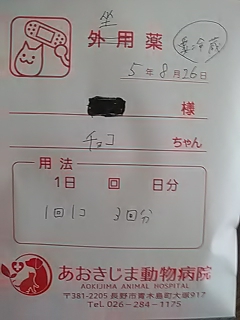 坐
外用薬 要冷蔵
5年8月26日
様
チョコ ちゃん
用法
1日 回 日分
1回1コ 3回分
あおきじま動物病院
AOKIJIMA ANIMAL HOSPITAL
〒381-2205 長野市青木島町大塚917
TEL 026-284-1175